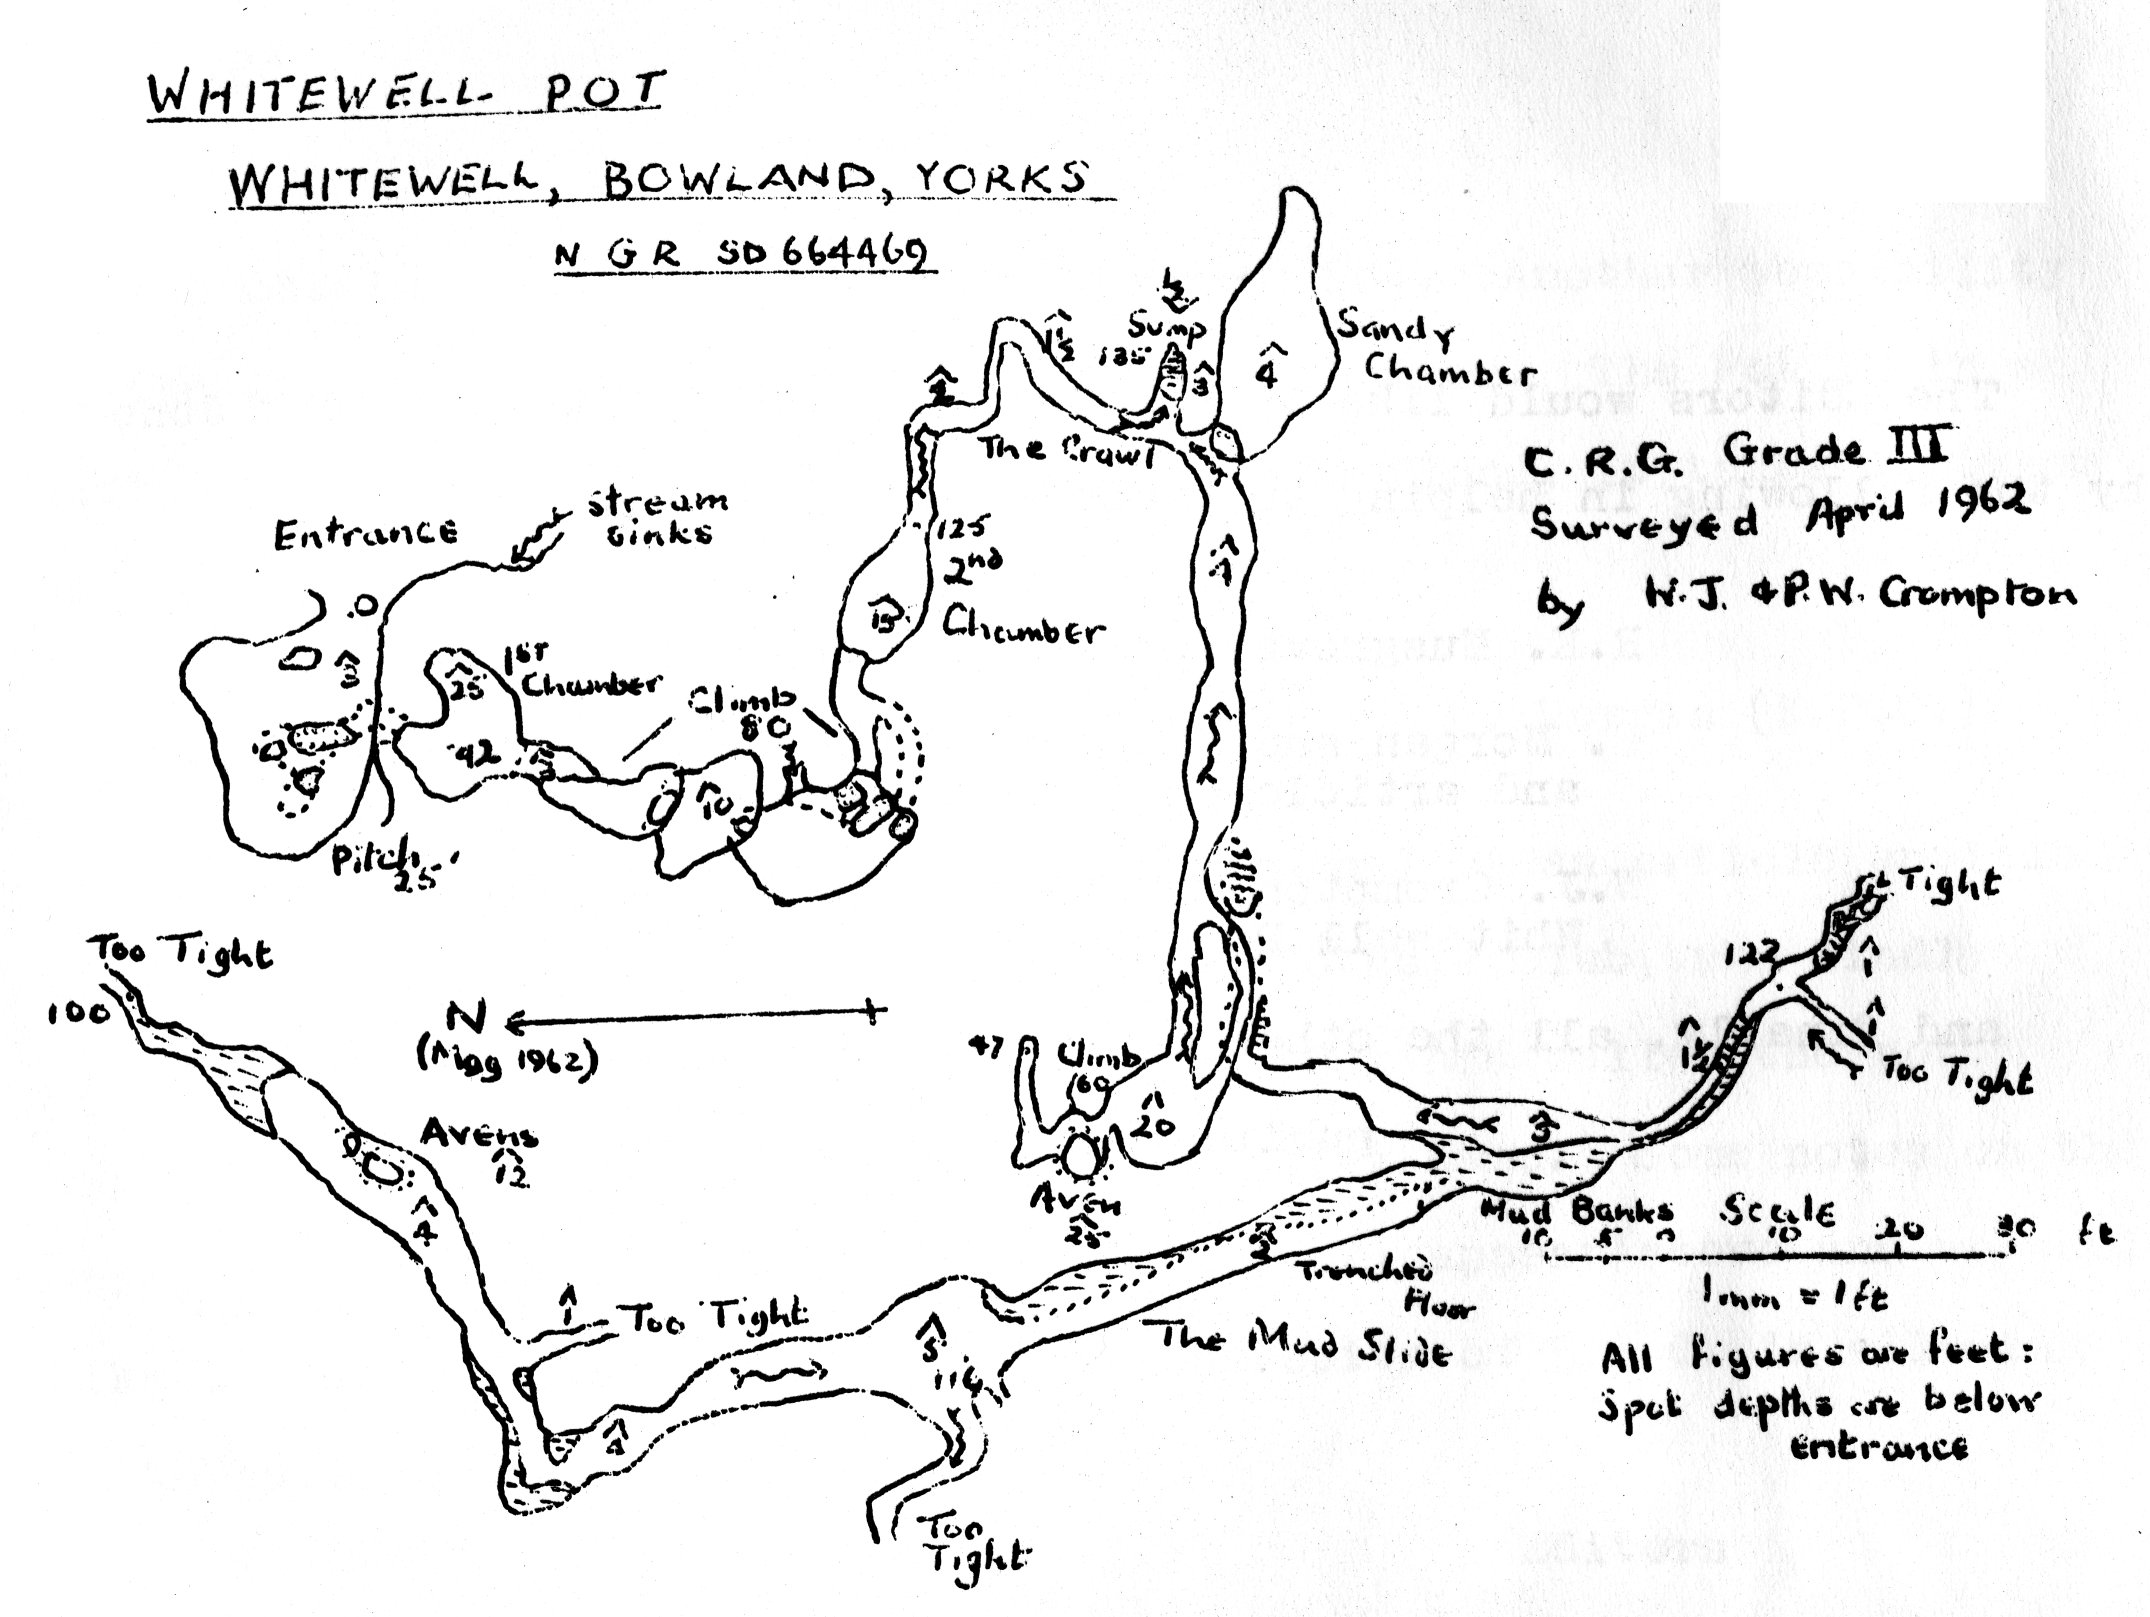 WHITEWELL POT
WHITEWELL, BOWLAND, YORKS
N G R SD 664469
Sump
135
3
4
Sandy
Chamber
1½
2
The Crawl
C.R.G. Grade III
Surveyed April 1962
by W.J. & P.W. Crompton
Entrance
stream
sinks
125
2nd
Chamber
15
1st
Chamber
25
42
Climb
80
10
Pitch
25
Too Tight
100
N
(Mag 1962)
Avens
12
4
47
Climb
60
20
Aven
25
Tight
122
1
1
1½
Too Tight
3
Mud Banks
Scale
10 5 0 10 20 30 ft
1mm = 1ft
All figures are feet:
Spot depths are below
entrance
2
Trenched
Floor
The Mud Slide
1
Too Tight
5
116
Too
Tight